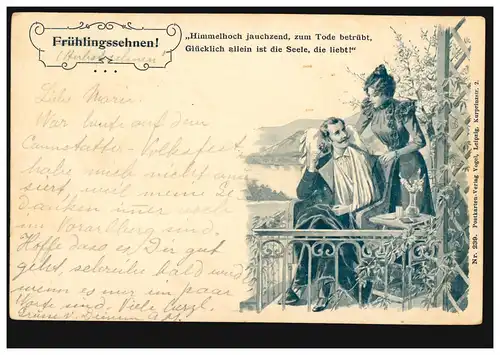 Frühlingssehnen!
(Herbstsehnen)
„Himmelhoch jauchzend, zum Tode betrübt,
Glücklich allein ist die Seele, die liebt!"
Liebe Marie.
War heute auf dem
Cannstatter - Volksfest
habe mich nicht amü
siert, weil meine Ge
danken immer noch
im Vorarlberg sind.
Hoffe dass es Dir gut
geht, schreibe bald und
wenn es nur ein paar
Worte sind. Viele herzl.
Grüsse v. Deinem
Nr. 239. Postkarten-Verlag Vogel, Leipzig, Kurprinzstr. 2.